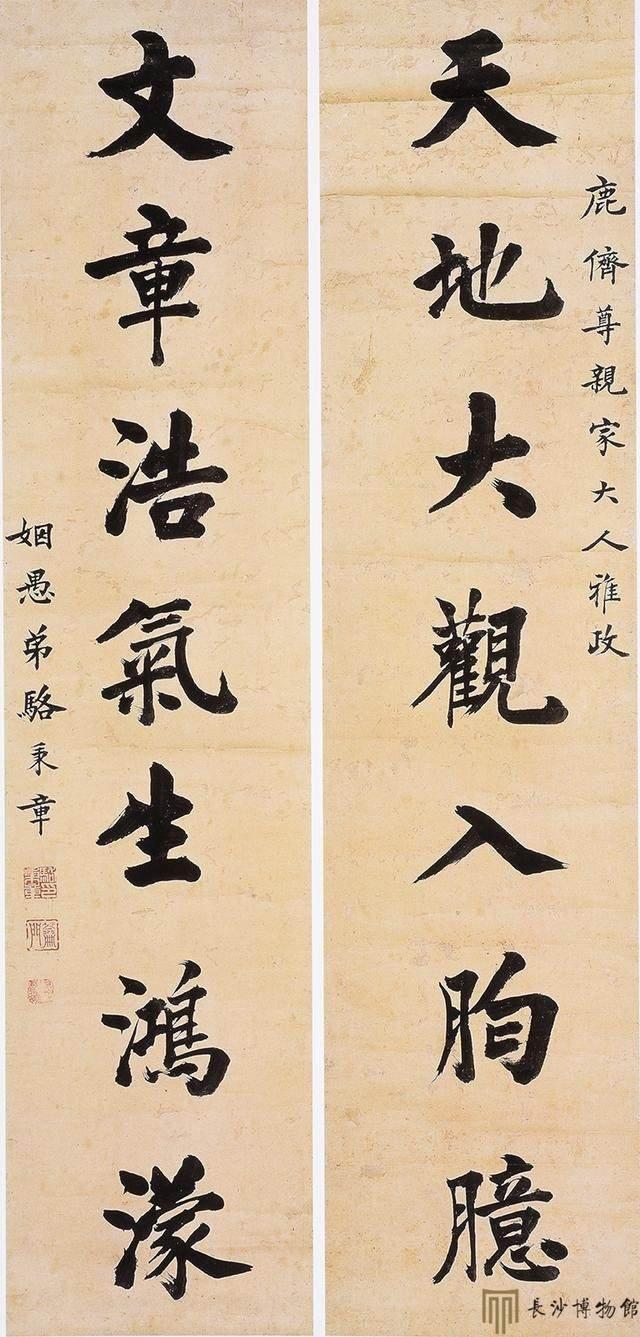 鹿儕尊親家大人雅政
天地大觀入胸臆
文章浩氣生鴻濛
姻愚弟駱秉章
駱印秉章
長沙博物館